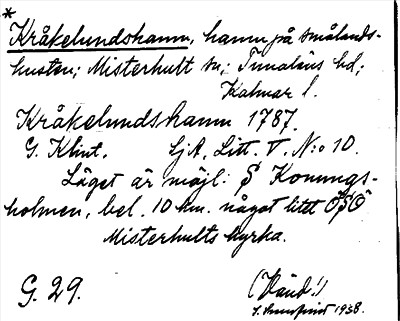 *
Kråkelundshamn, hamn på smålands-
kusten; Misterhult sn; Tunaläns hd;
Kalmar l.
Kråkelundshamn 1787.
G. Klint. SjA, Litt. V. N:o 10.
Läget är möjl. S Konungs-
holmen, bel. 10 km. något litet OSO
Misterhults kyrka.
G. 29. (Vänd!)
1938.